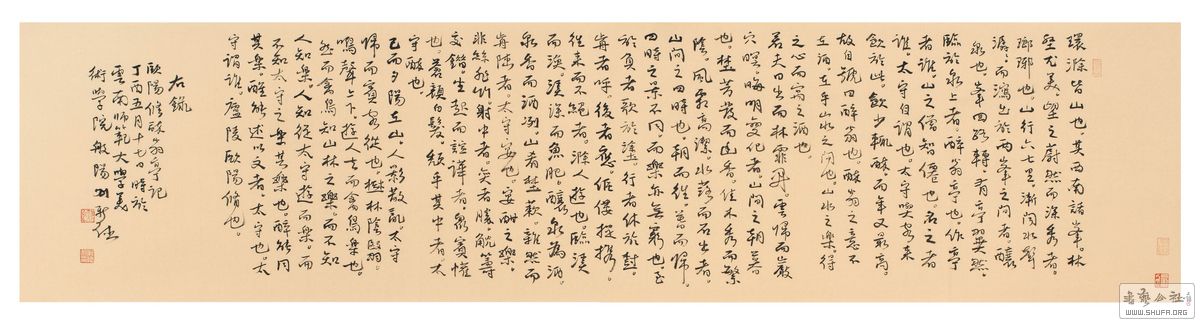 環滁皆山也。其西南諸峯。林
壑尤美。望之蔚然而深秀者。
瑯琊也。山行六七里。漸聞水聲
潺。而瀉出於兩峯之間者。釀
泉也。峯回路轉。有亭翼然。
臨於泉上者。醉翁亭也。作亭
者誰。山之僧智僊也。名之者
誰。太守自謂也。太守與客來
飲於此。飲少輒醉。而年又最高。
故自號曰醉翁也。醉翁之意不
在酒。在乎山水之間也。山水之樂。得
之心而寓之酒也。
若夫日出而林霏開。雲歸而巖
穴暝。晦明變化者。山間之朝暮
也。野芳發而幽香。佳木秀而繁
陰。風霜高潔。水落而石出者。
山間之四時也。朝而往。暮而歸。
四時之景不同。而樂亦無窮也。至
於負者歌於塗。行者休於樹。
前者呼。後者應。傴僂提攜。
往來而不絕者。滁人遊也。臨溪
而漁。溪深而魚肥。釀泉為酒。
泉香而酒洌。山肴野蔌。雜然而
前陳者。太守宴也。宴酣之樂。
非絲非竹。射中者。奕者勝。觥籌
交錯。坐起而諠譁者。眾賓懽
也。蒼顏白髮。頹乎其中者。太
守醉也
已而夕陽在山。人影散亂。太守
歸而賓客從也。樹林陰翳。
鳴聲上下。遊人去而禽鳥樂也。
然而禽鳥知山林之樂。而不知
人知樂。人知從太守遊而樂。而
不知太守之樂其樂也。醉能同
其樂。醒能述以文者。太守也。太
守謂誰。廬陵歐陽脩也。
右錄
歐陽脩醉翁亭記
丁酉五月十七日時於
雲南師範大學美
術學院
書藝公社
WWW.SHUFA.ORG